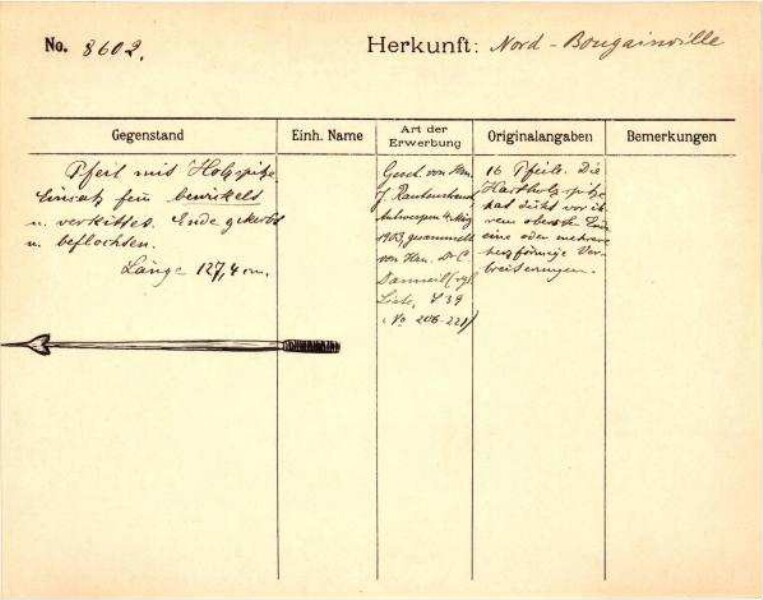 No. 8602.
Herkunft: Nord-Bougainville
Gegenstand
Einh. Name
Art der Erwerbung
Originalangaben
Bemerkungen
Pfeil mit Holzspitze.
Einsatz fein bewickelt
u. verkittet. Ende gekerbt
u. beflochten.
Länge 127,4 cm.
Gesch. von Hrn.
J. Rautenstrauch
Antwerpen 4. März
1903, gesammelt
von Hrn. Dr C.
Danneil (vgl.
Liste, S 39
No 206-221)
16 Pfeile. Die
Hartholzspitze
hat dicht vor ih
rem obersten Ende
eine oder mehrere
herzförmige Ver-
breiterungen.